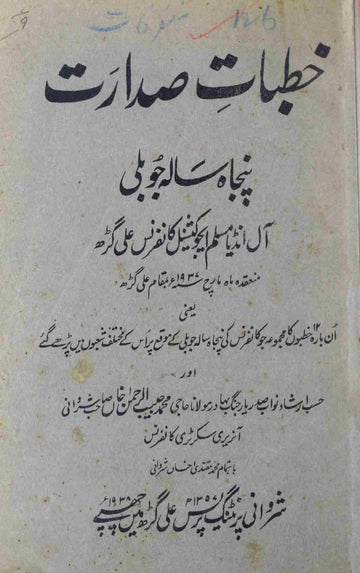 خطباتِ صدارت
پنجاہ سالہ جوبلی
آل انڈیا مسلم ایجوکیشنل کانفرنس علی گڑھ
منعقدہ ماہ مارچ ۱۹۳۷ء بمقام علی گڑھ
یعنی
اُن بارہ ۱۲ خطبوں کا مجموعہ جو کانفرنس کی پنجاہ سالہ جوبلی کے موقع پر اس کے مختلف شعبوں میں پڑھے گئے
اور
حسب ارشاد نواب صدر یار جنگ بہادر مولانا حاجی محمد حبیب الرحمن خاں صاحب شروانی
آنریری سکرٹری کانفرنس
باہتمام محمد مقتدیٰ خاں شروانی
شروانی پرنٹنگ پریس علی گڑھ میں چھپے
۱۳۵۷ھ ۱۹۳۸ء